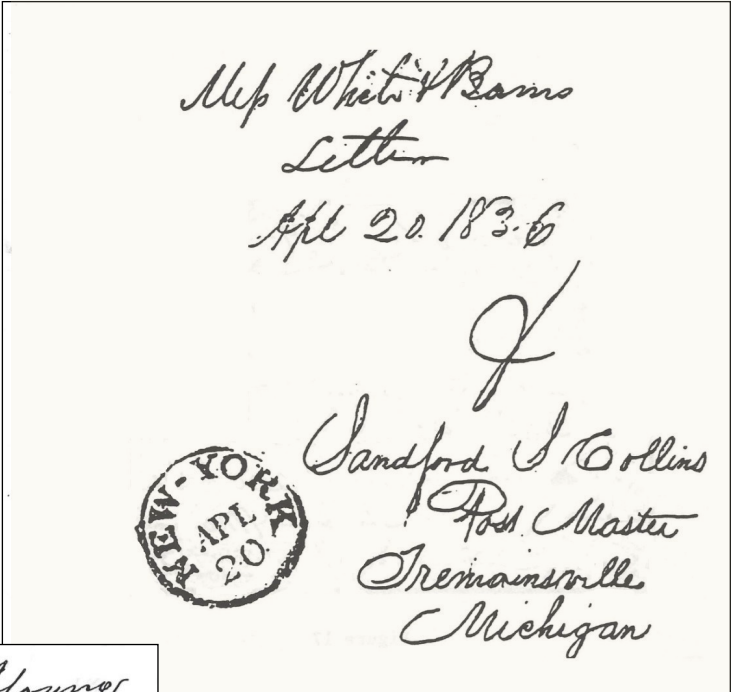 Mess White & Barns
Letter
Apl 20. 1836
Sandford S Collins
Post Master
Tremainsville
Michigan
NEW-YORK
APL
20.
Young